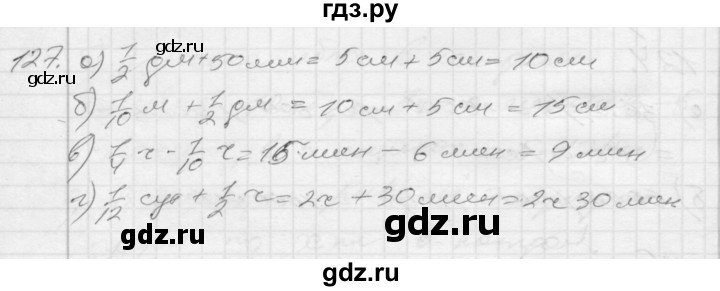 гдз.ру
127. а) 1/2 дм + 50 мм = 5 см + 5 см = 10 см
б) 1/10 м + 1/2 дм = 10 см + 5 см = 15 см
в) 1/4 ч - 1/10 ч = 15 мин - 6 мин = 9 мин
г) 1/12 сут + 1/2 ч = 2ч + 30 мин = 2ч 30 мин
gdz.ru
gdz.ru
gdz.ru
gdz.ru
gdz.ru
gdz.ru